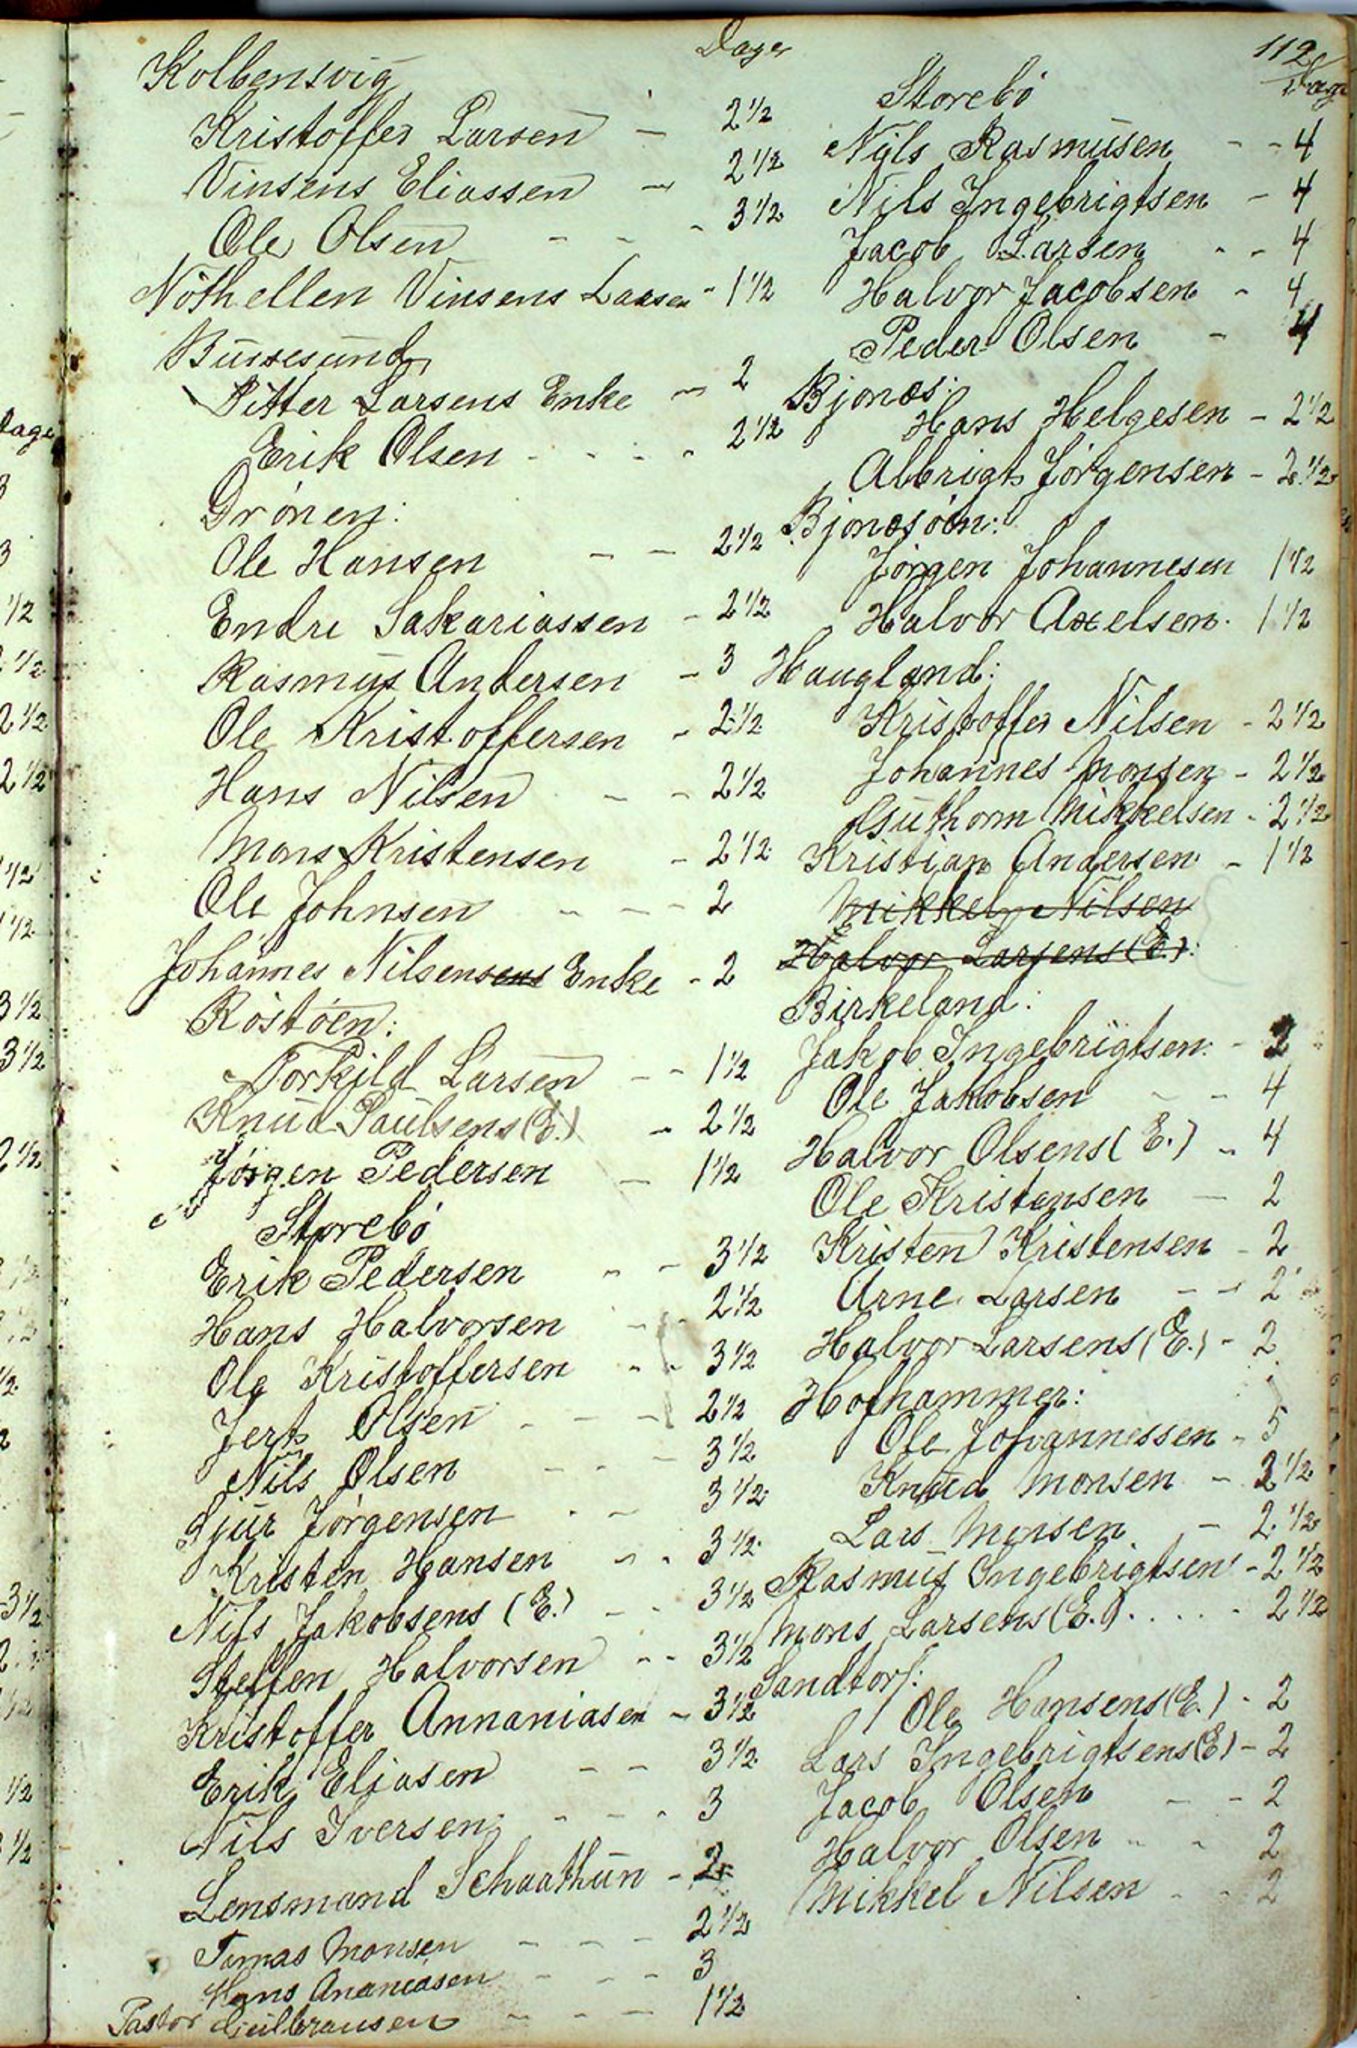 112
Dager
Kolbensvig
Kristoffer Larsen - 2 1/2
Vinsens Eliassen - 2 1/2
Ole Olsen - - - 3 1/2
Nöthellen Vinsens Larsen - 1 1/2
Bussesund
Pitter Larsens Enke - 2
Erik Olsen - - - - 2 1/2
Drönen:
Ole Hansen - - 2 1/2
Endre Sakariassen - 2 1/2
Rasmus Andersen - 3
Ole Kristoffersen - 2 1/2
Hans Nilsen - - 2 1/2
Mons Kristensen - 2 1/2
Ole Johnsen - - - 2
Johannes Nilsensens Enke - 2
Rostöen:
Torkild Larsen - - 1 1/2
Knud Paulsens (E.) - 2 1/2
Jörgen Pedersen - 1 1/2
Storebö
Erik Pedersen - - 3 1/2
Hans Halvorsen - - 2 1/2
Ole Kristoffersen - - 3 1/2
Jert Olsen - - - 2 1/2
Nils Olsen - - - 3 1/2
Sjur Jörgensen - - 3 1/2
Kristen Hansen - - 3 1/2
Nils Jakobsens (E.) - - 3 1/2
Steffen Halvorsen - - 3 1/2
Kristoffer Annaniasen - 3 1/2
Erik Eliasen - - 3 1/2
Nils Iversen - - - 3
Lensmand Schaathun - 2
Tomas Monsen - - - 2 1/2
Hans Ananiasen - - - 3
Pastor Gulbransen - - - 1 1/2
Dage
Storebö
Nils Rasmusen - - 4
Nils Ingebrigtsen - 4
Jacob Larsen - - 4
Halvor Jacobsen - 4
Peder Olsen - 4
Bjonæs:
Hans Helgesen - 2 1/2
Albrigt Jörgensen - 2 1/2
Bjonæsöen:
Jörgen Johannesen 1 1/2
Halvor Axelsen. 1 1/2
Haugland:
Kristoffer Nilsen - 2 1/2
Johannes Monsen - 2 1/2
Guthorm Mikkelsen - 2 1/2
Kristian Andersen - 1 1/2
Mikkel Nilsen
Halvor Larsens (E.):
Birkeland:
Jakob Ingebrigtsen - 2
Ole Jakobsen - - 4
Halvor Olsens (E.) - 4
Ole Kristensen - 2
Kristen Kristensen - 2
Arne Larsen - - 2
Halvor Larsens (E.) - 2
Hofhammer:
Ole Johannessen - 5
Knud Monsen - 2 1/2
Lars Monsen - 2 1/2
Rasmus Ingebrigtsen - 2 1/2
Mons Larsens (E.) . . . . - 2 1/2
Sandtorf:
Ole Hansens (E.) - 2
Lars Ingebrigtsens (E) - 2
Jacob Olsen - - 2
Halvor Olsen - - 2
Mikkel Nilsen - - 2